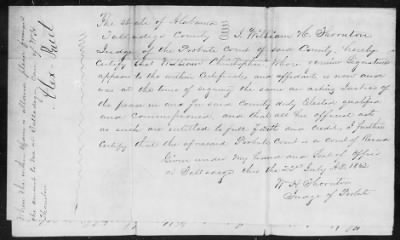 The State of Alabama
Talladega County I, William H. Thornton
Judge of the Probate Court of said County, hereby
Certify that Christopher Whose genuine Signatures
appear to the within Certificate and affidavit is now and
was at the time of signing the same an acting Justice of
the peace in and for said County duly Elected qualified
and Commissioned, and that all his official acts
as such are entitled to full faith and credit. I further
Certify that the aforesaid Probate Court is a Court of Record
Given under my hand and Seal of Office
at Talladega this the 22d July 1862
W H Thornton
Judge of Probate
When the within is allowed please forward
the amount to me at Talladega Care of W H
Thornton